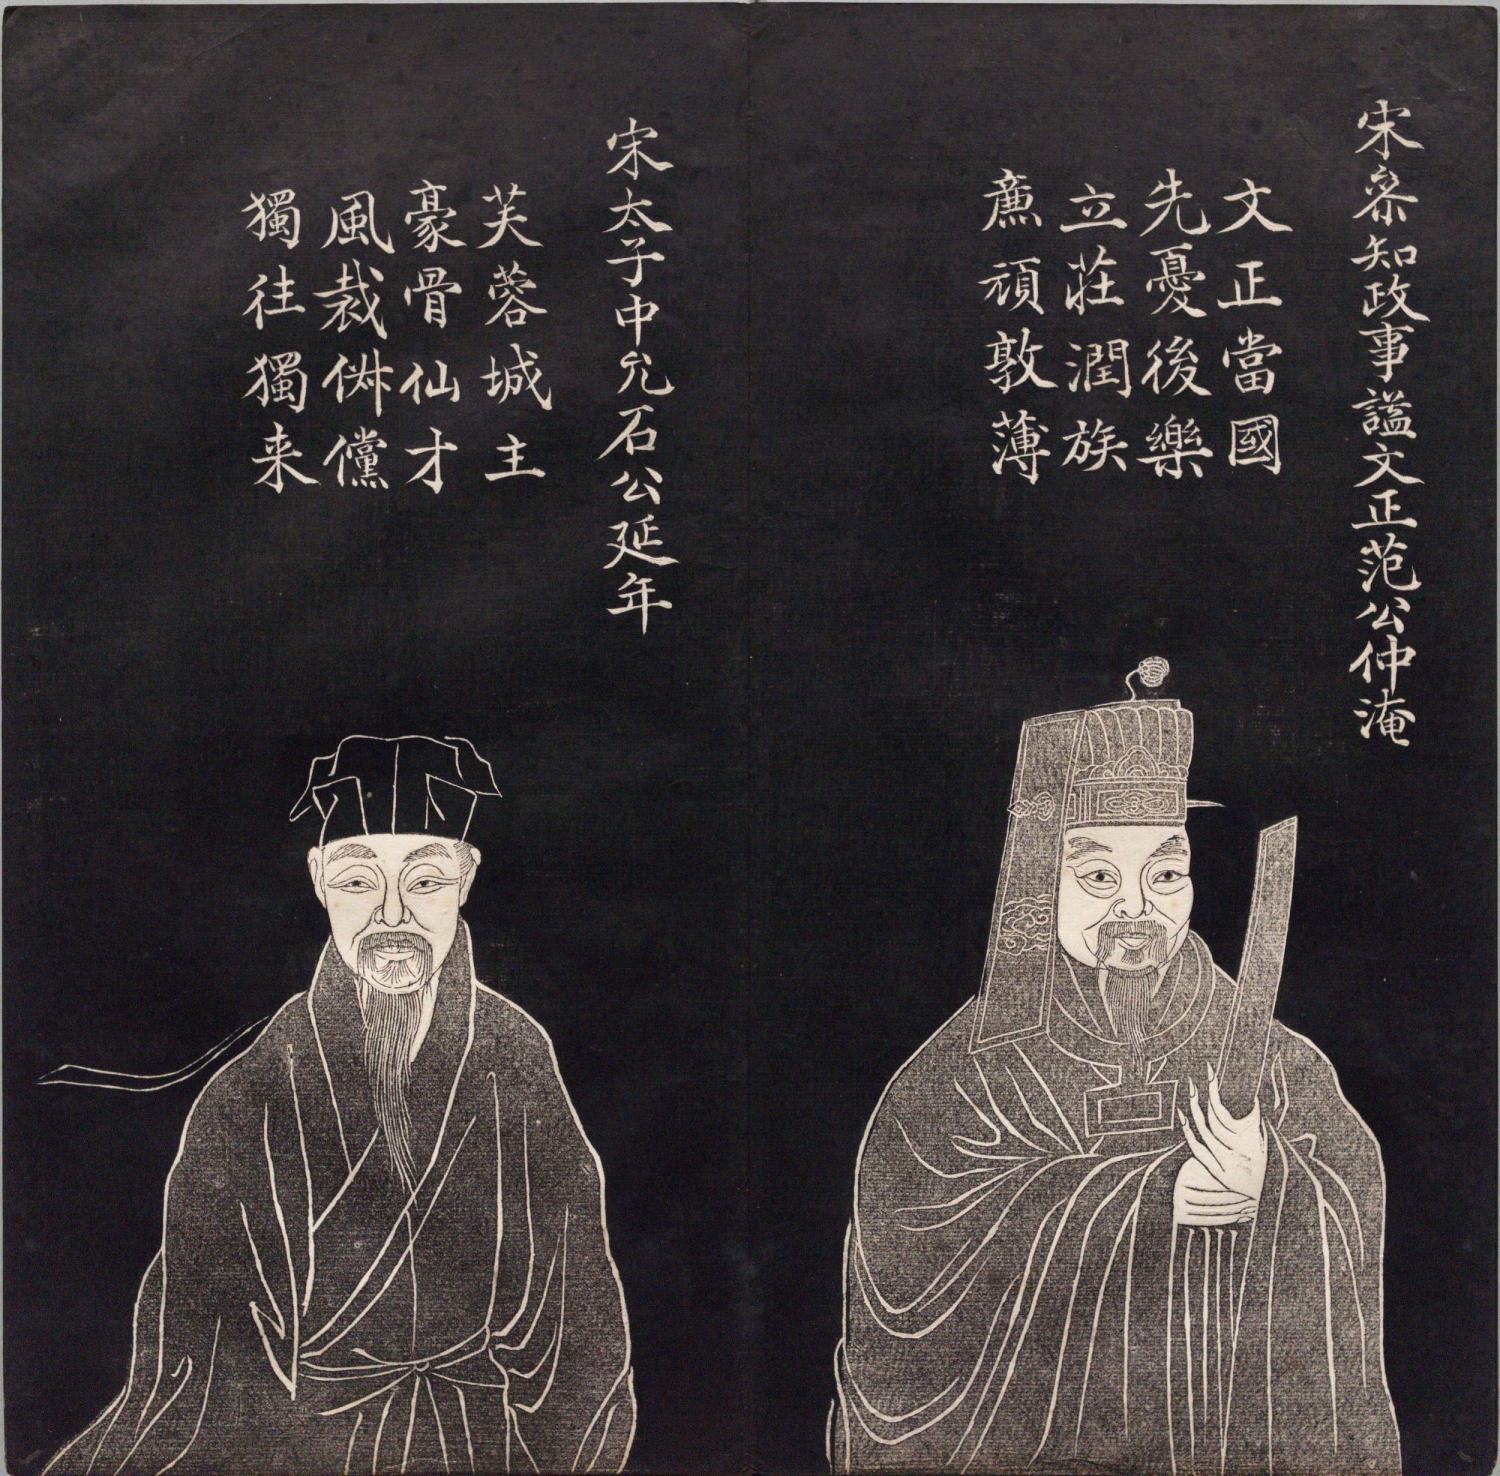 宋叅知政事謚文正范公仲淹
文正當國
先憂後樂
立莊潤族
廉頑敦薄
宋太子中允石公延年
芙蓉城主
豪骨仙才
風裁倜儻
獨往獨来